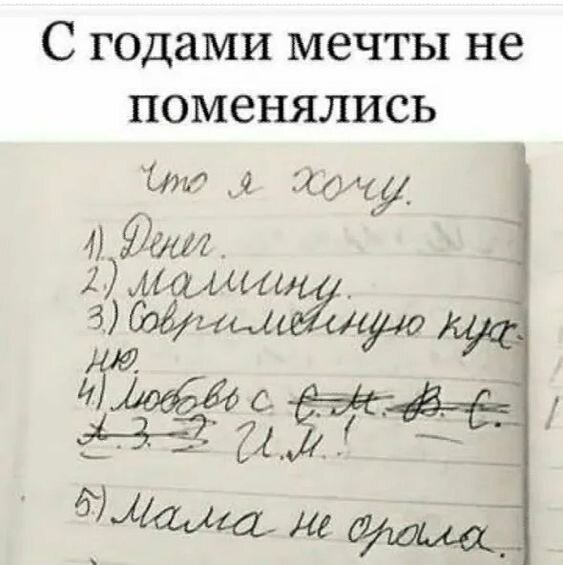 С годами мечты не
поменялись
Что я хочу.
1) Денег.
2) Машину.
3) Соврименную кух-
ню.
4) Любовь с С.М. В. С.
А.З. И.М.!
5) Мама не орала.